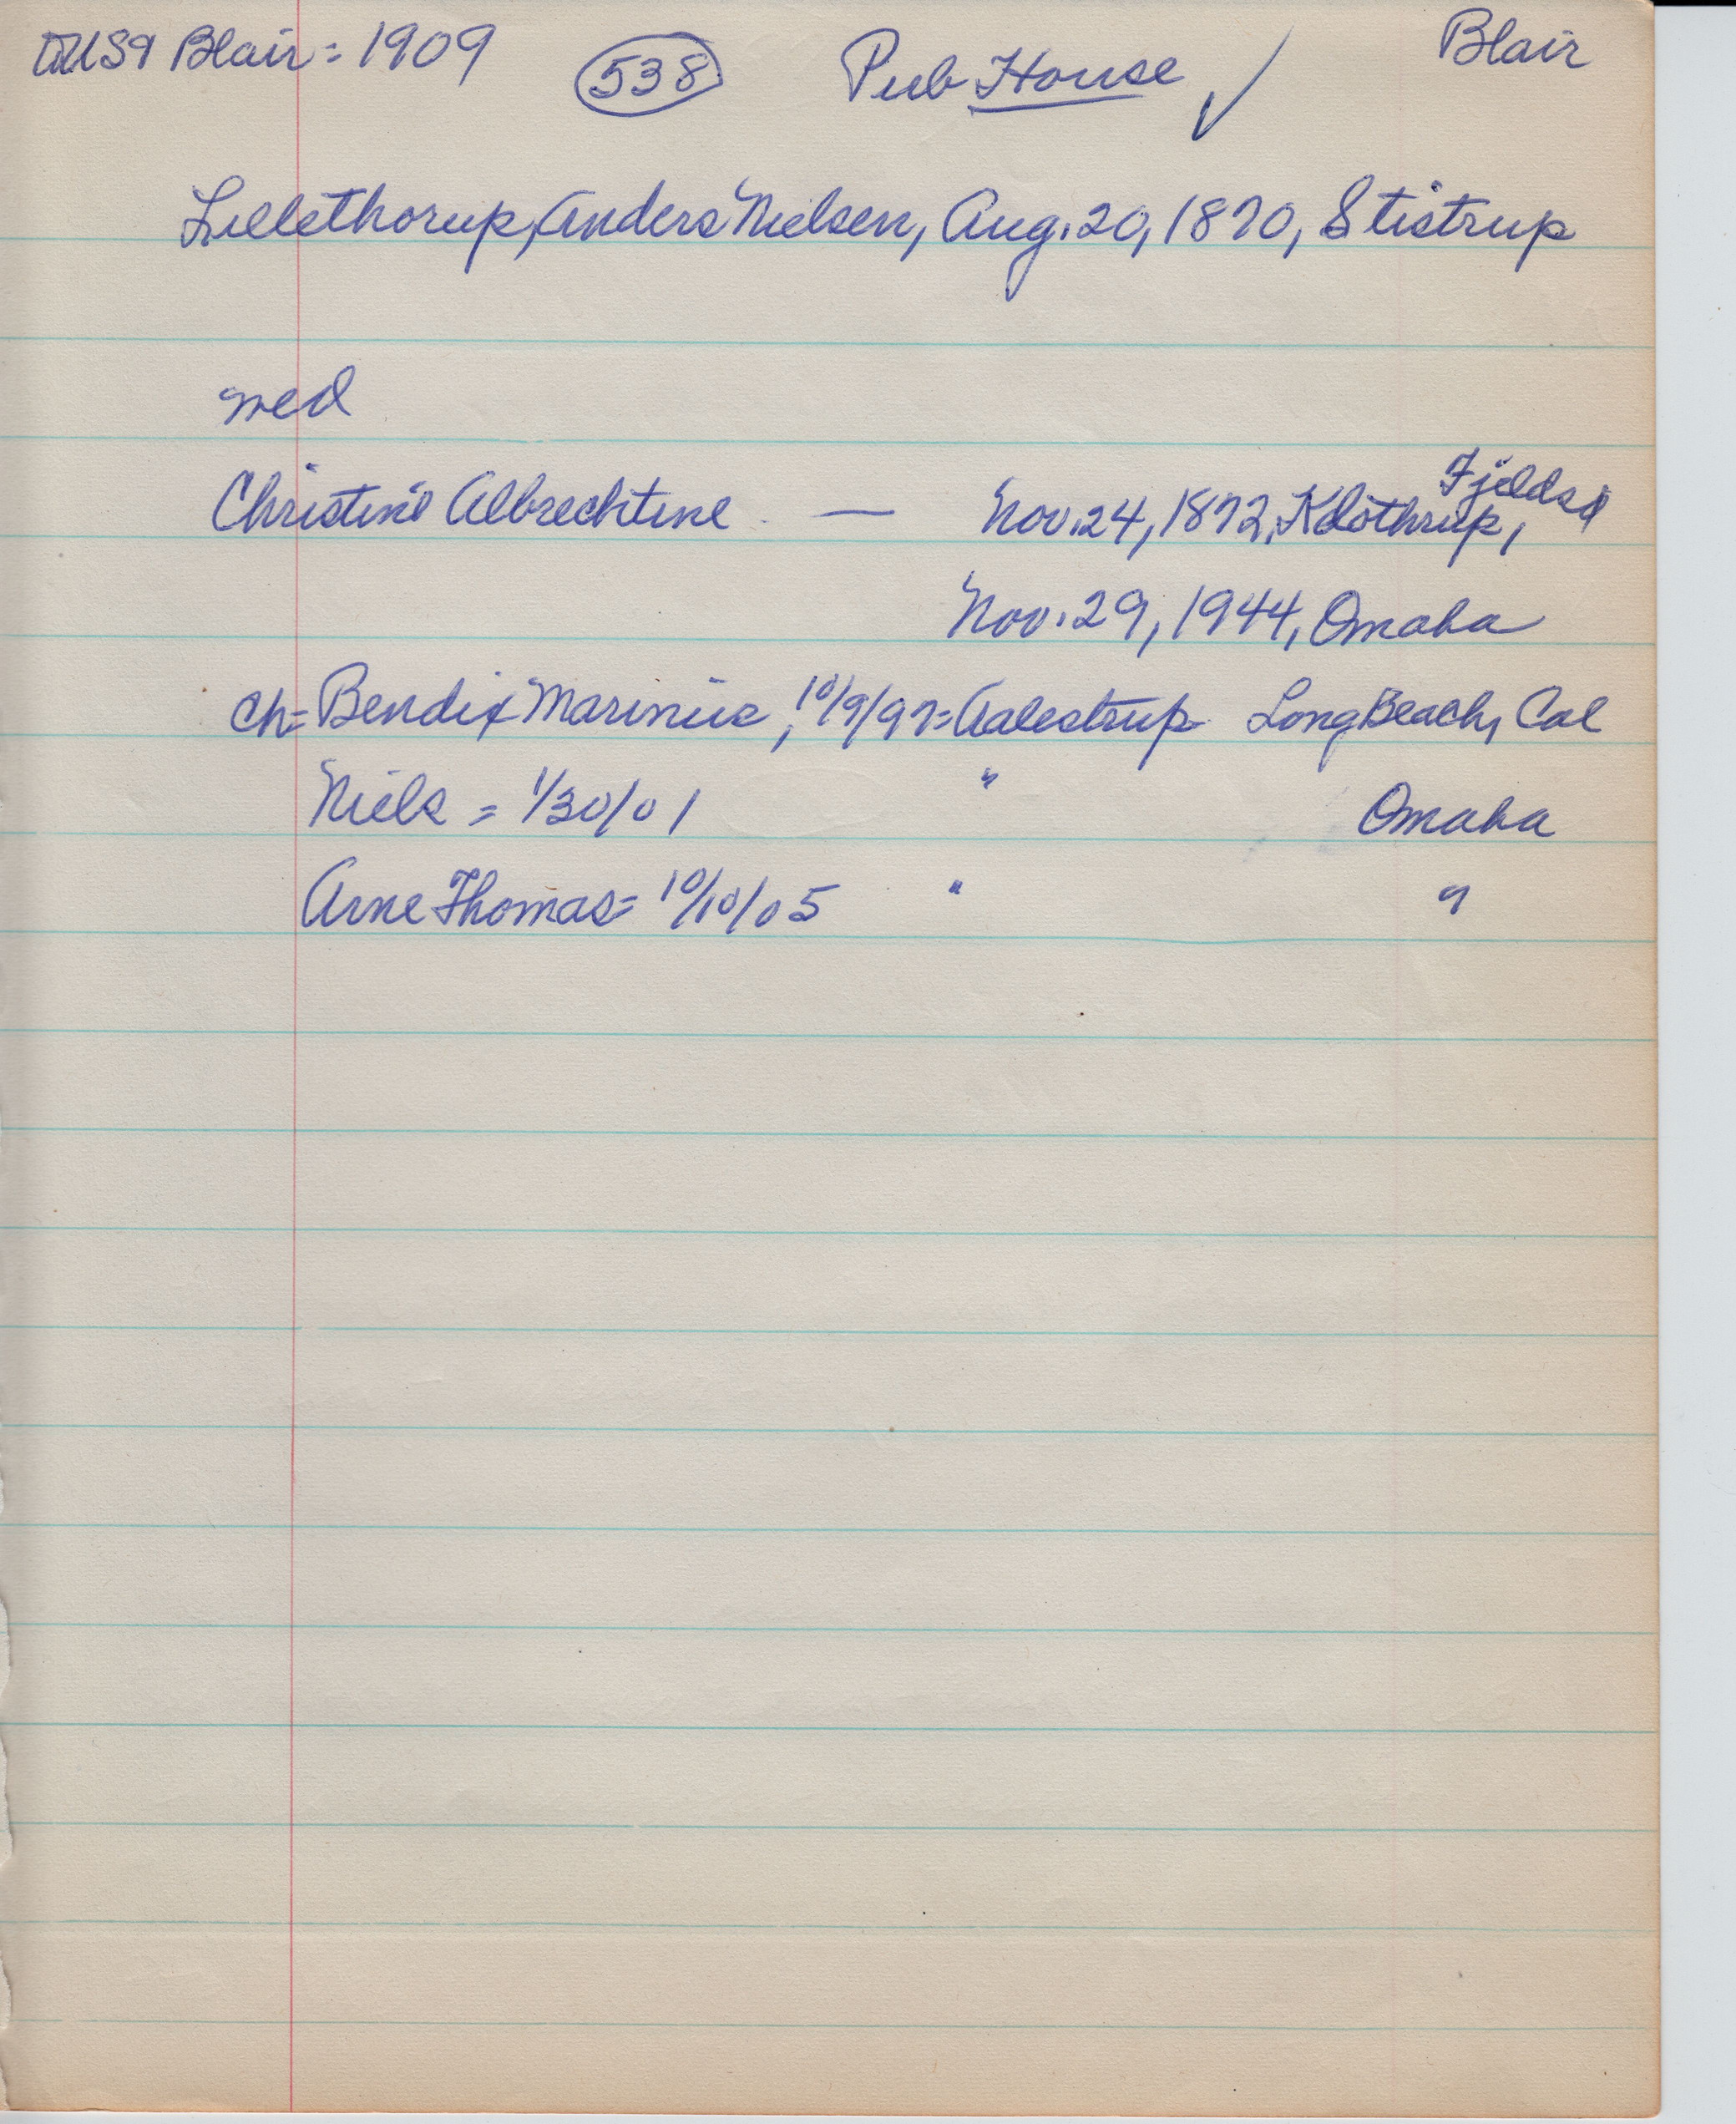 USA Blair = 1909 538 Pub House ✓ Blair
Lillethorup, Anders Nielsen, Aug. 20, 1870, Stistrup
med
Christine Albrechtine — Nov. 24, 1872, Klothrup, Fjeldsø
Nov. 29, 1944, Omaha
ch = Bendix Marinus, 10/9/97 = Aalestrup Long Beach, Cal
Niels = 1/30/01 " Omaha
Arne Thomas = 10/10/05 " "